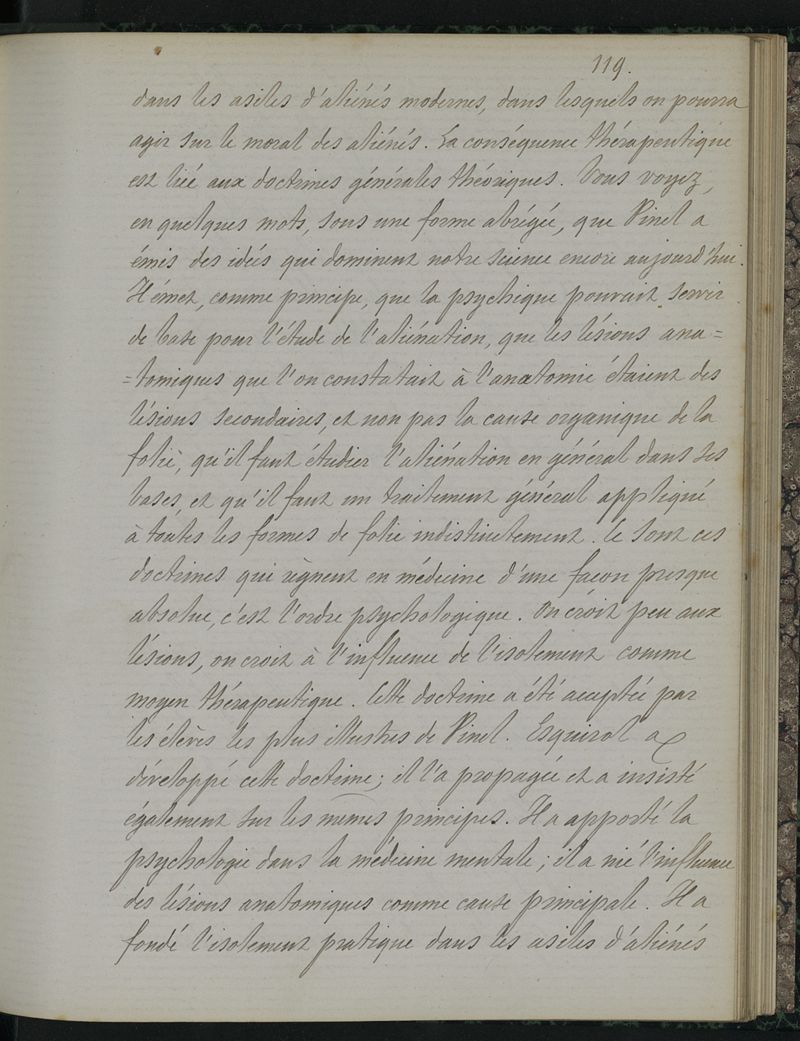 119.
dans les asiles d'aliénés modernes, dans lesquels on pourra
agir sur le moral des aliénés. La conséquence thérapeutique
est liée aux doctrines générales théoriques. Vous voyez,
en quelques mots, sous une forme abrégée, que Pinel a
émis des idées qui dominent notre science encore aujourd'hui.
Il émet, comme principe, que la psychique pouvait servir
de base pour l'étude de l'aliénation, que les lésions ana=
=tomiques que l'on constatait à l'anatomie étaient des
lésions secondaires, et non pas la cause organique de la
folie, qu'il faut étudier l'aliénation en général dans ses
bases, et qu'il faut un traitement général appliqué
à toutes les formes de folie indistinctement. Ce sont ces
doctrines qui règnent en médecine d'une façon presque
absolue, c'est l'ordre psychologique. On croit peu aux
lésions, on croit à l'influence de l'isolement comme
moyen thérapeutique. Cette doctrine a été acceptée par
les élèves les plus illustres de Pinel. Esquirol a
développé cette doctrine; il l'a propagée et a insisté
également sur les mêmes principes. Il a apporté la
psychologie dans la médecine mentale; il a nié l'influence
des lésions anatomiques comme cause principale. Il a
fondé l'isolement pratique dans les asiles d'aliénés